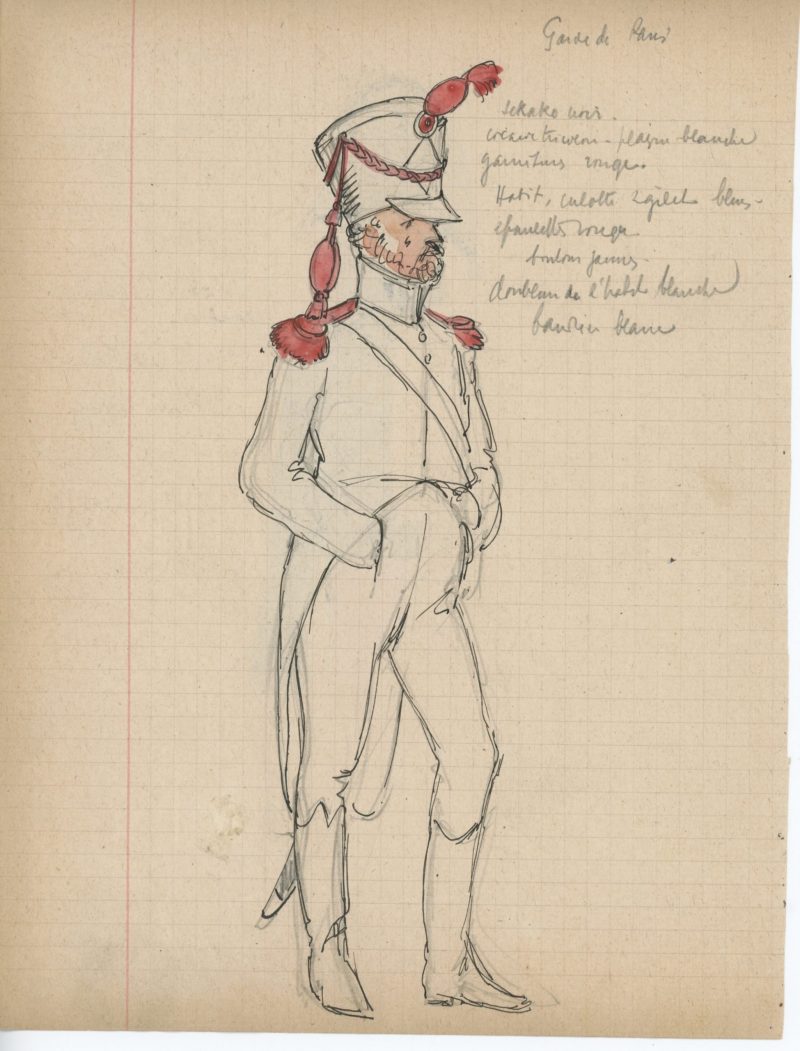 Garde de Paris
Schako noir.
cocarde tricolore - plaque blanche
garnitures rouges.
Habit, culotte & gilet bleus -
épaulettes rouges
boutons jaunes -
doublure de l'habit blanche
baudrier blanc